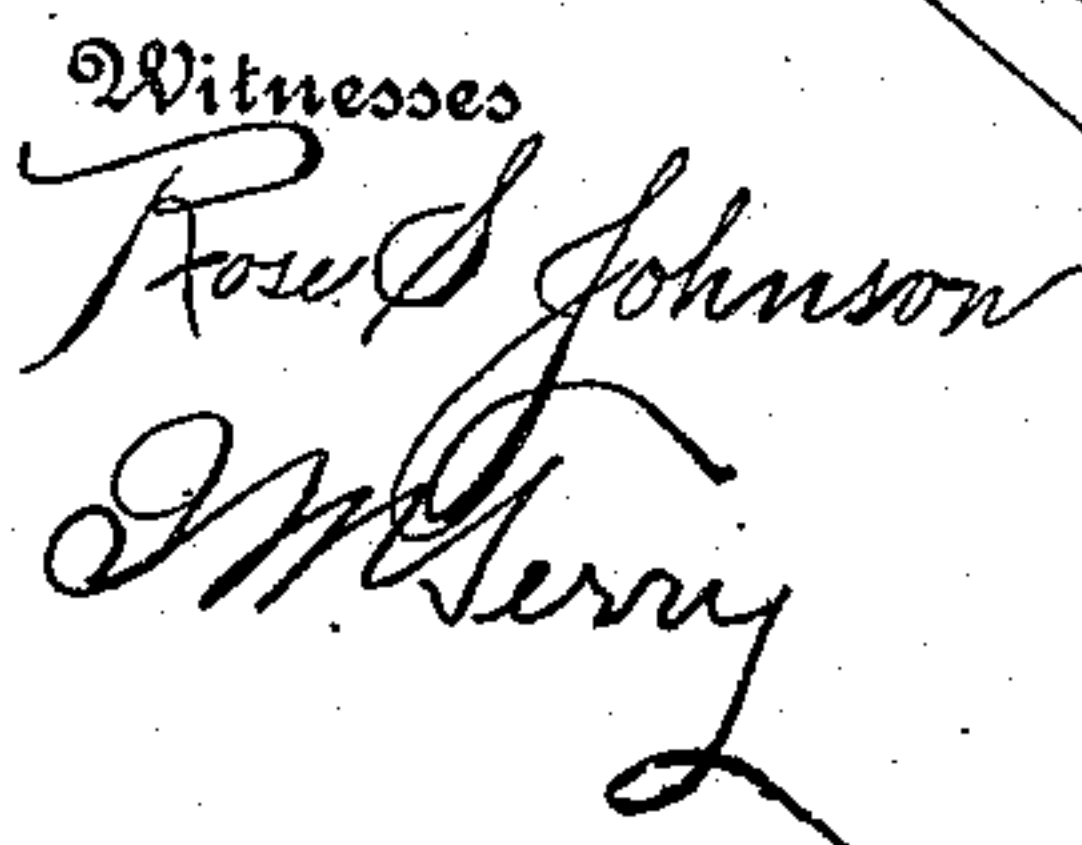 Witnesses
Rose S Johnson
I M Terry